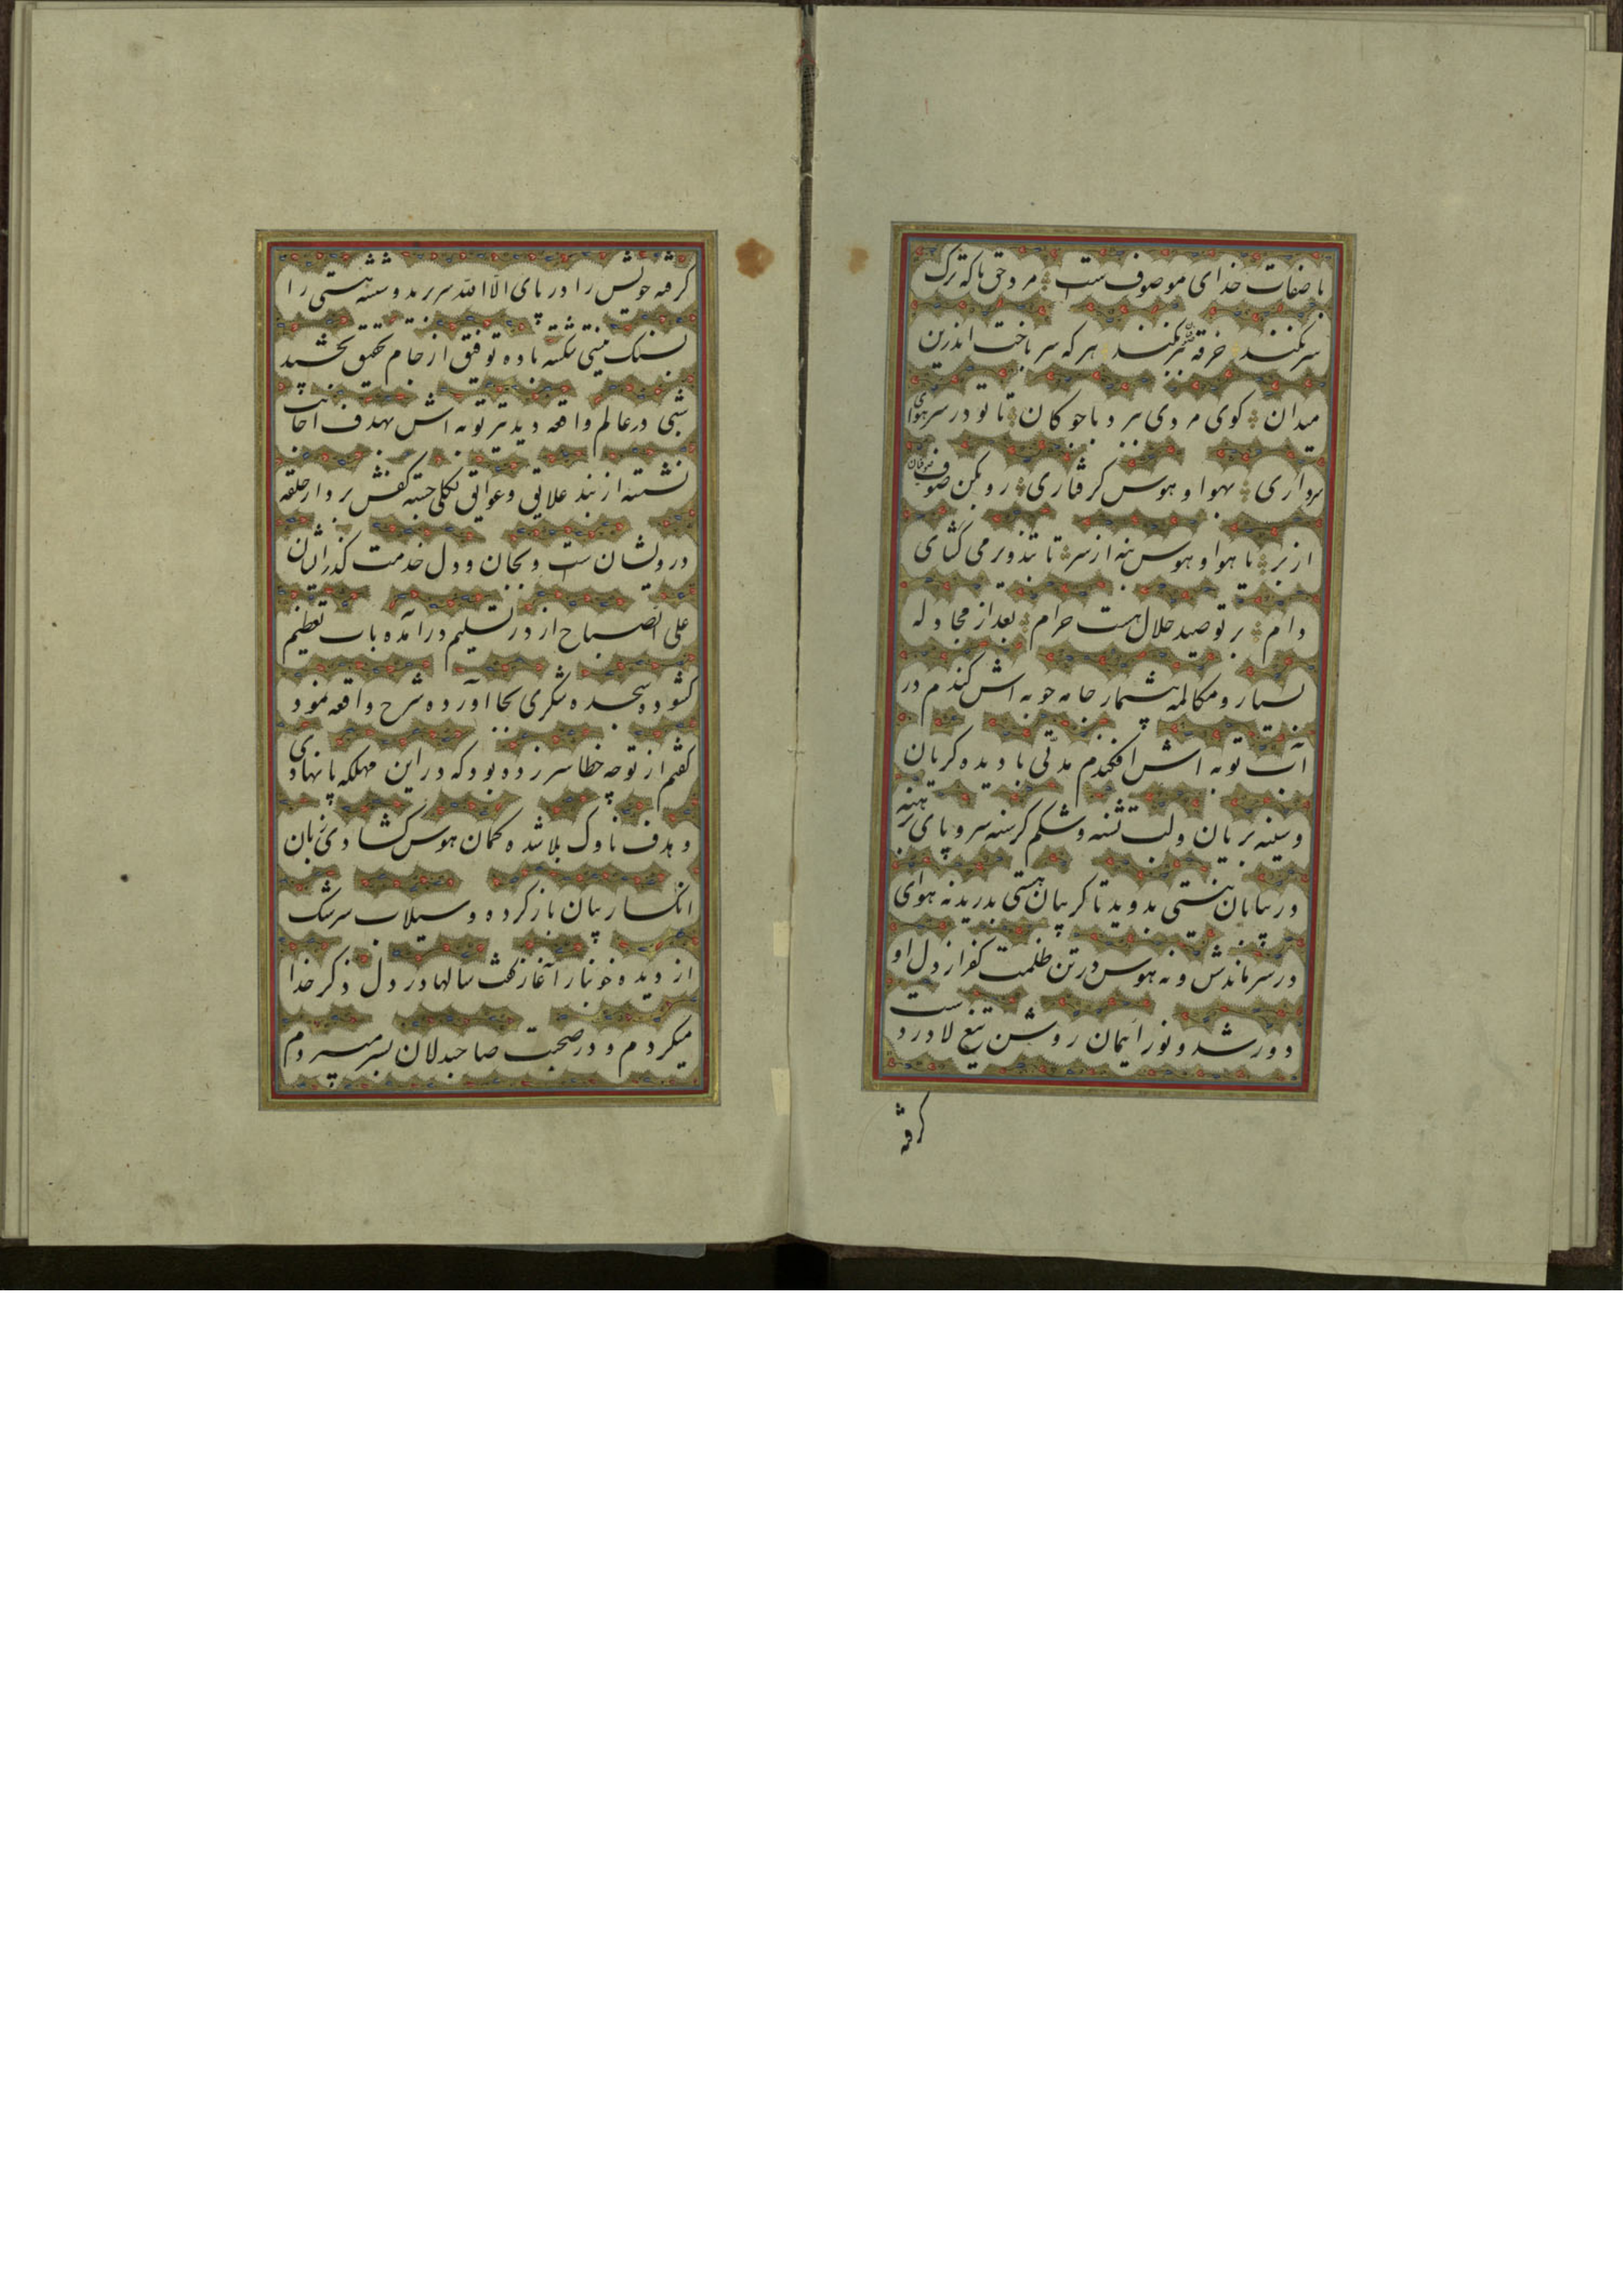 با صفات خدای موصوف ست مرد حق تا که ترک
سر نکند خرقه در بر نکند هر که سر باخت اندرین
میدان کوی مردی برد با چوکان تا تو در سر هوای
سرداری بهوا و هوس کرفتاری رو بکن صوف صوفیان
از بر یا هوا و هوس بنه از سر تا بتذویر می کشای
دام بر تو صید حلال هست حرام بعد از مجادله
بسیار و مکالمه بیشمار جامه حوبه اش کندم در
آب توبه اش افکندم مدتی با دیده کریان
و سینه بریان و لب تشنه و شکم کرسنه سر و پای برهنه
در بیابان نیستی بدوید تا کریبان هستی بدرید نه هوای
در سر ماندش و نه هوس در تن ظلمت کفر از دل او
دور شد و نور ایمان روشن تیغ لا در دست
کرفته
کرفته خویش را در پای الا الله سر برید و شیشه هستی را
بسنک نیستی شکسته باده توفیق از جام تحقیق بخشید
شبی در عالم واقعه دید تیر توبه اش بهدف اجابت
نشسته از بند علایق و عوایق بکلی جسته کفتش بر در حلقه
درویشان ست و بجان و دل خدمت کذر ایشان
علی الصباح از در تسلیم درآمده باب تعظیم
کشوده سجده شکری بجا آورده شرح واقعه نمود
کفتم از تو چه خطا سر زده بود که در این مهلکه پا نهادی
و هدف ناوک بلا شده کمان هوس کشادی زبان
انکسار بیان باز کرده و سیلاب سرشک
از دیده خونبار آغاز کفت سالها در دل ذکر خدا
میکردم و در صحبت صاحبدلان بسر میبردم